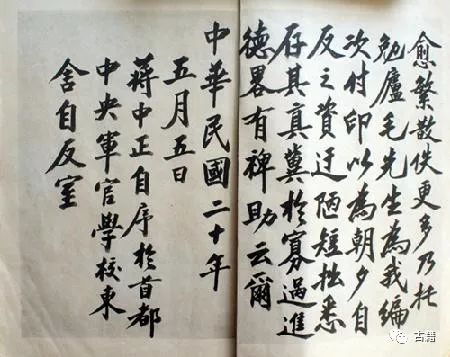 愈繁散佚更多乃托
勉廬毛先生為我編
次付印以為朝夕自
反之資迂陋短拙悉
存其真冀於寡過進
德畧有裨助云爾
中華民國二十年
五月五日
蔣中正自序於首都
中央軍官學校東
舍自反室
古籍